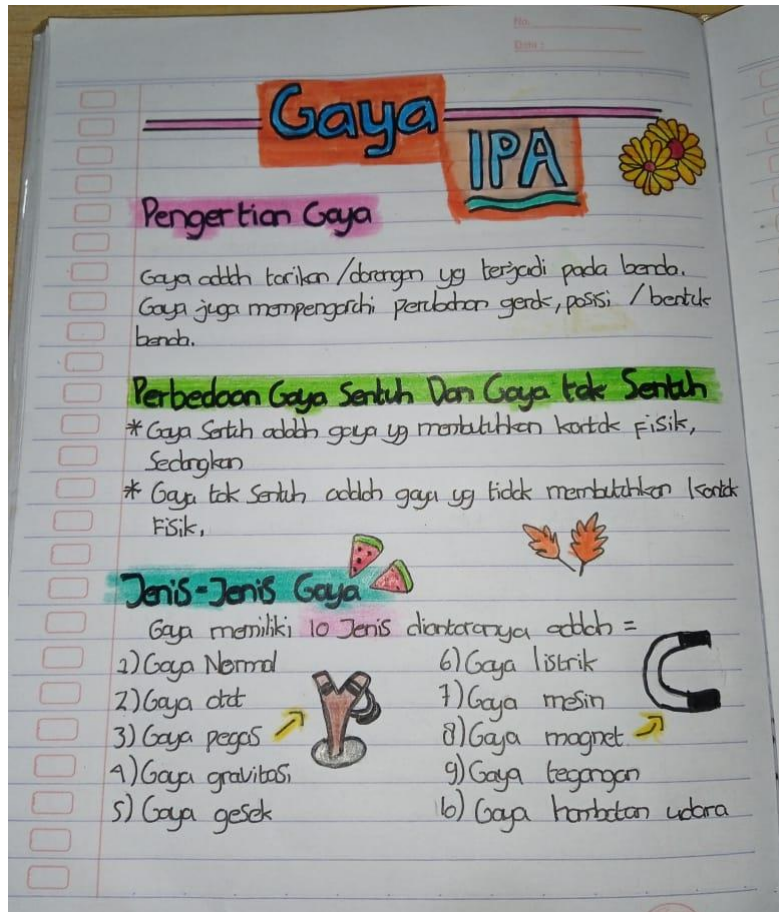 No.
Date :
Gaya
IPA
Pengertian Gaya
Gaya adalah tarikan /dorongan yg terjadi pada benda.
Gaya juga mempengaruhi perubahan gerak, posisi / bentuk
benda.
Perbedaan Gaya Sentuh Dan Gaya tak Sentuh
* Gaya Sentuh adalah gaya yg membutuhkan kontak Fisik,
Sedangkan
* Gaya tak Sentuh adalah gaya yg tidak membutuhkan kontak
Fisik,
Jenis-Jenis Gaya
Gaya memiliki 10 Jenis diantaranya adalah =
1) Gaya Normal
2) Gaya otot
3) Gaya pegas
4) Gaya gravitasi
5) Gaya gesek
6) Gaya listrik
7) Gaya mesin
8) Gaya magnet
9) Gaya tegangan
10) Gaya hambatan udara